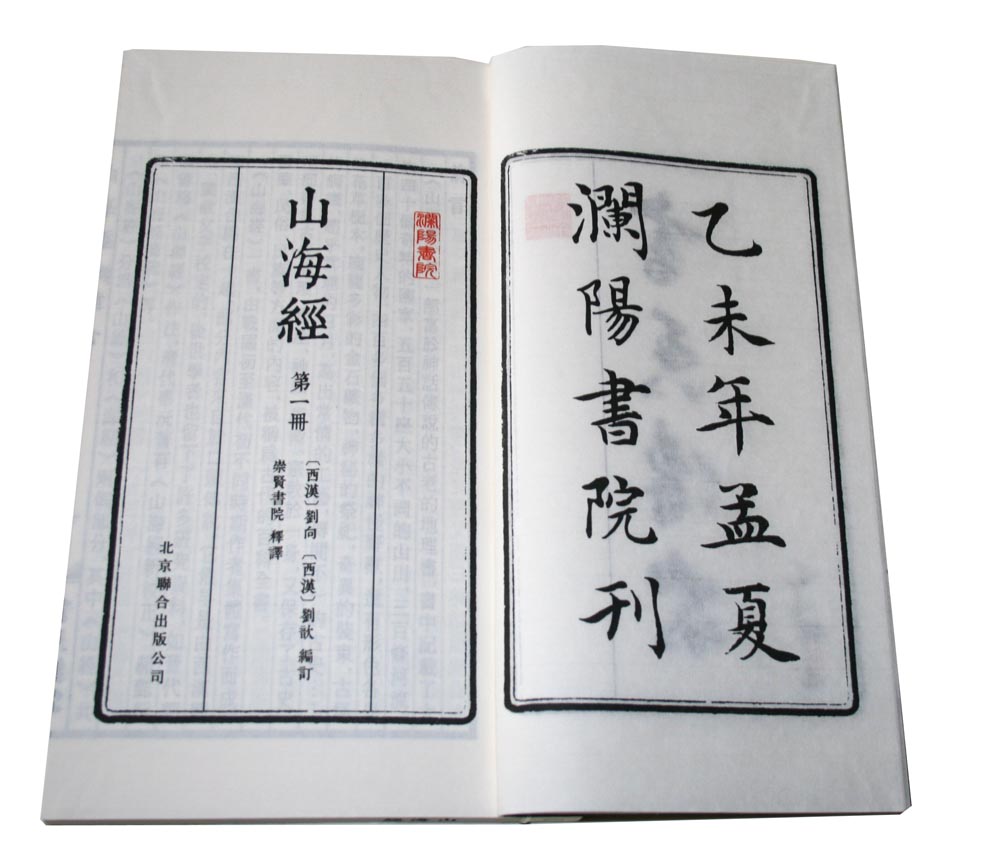 乙未年孟夏
瀾陽書院刊
瀾陽書院
山海經
第一冊
〔西漢〕劉向 〔西漢〕劉歆 編訂
崇賢書院 釋譯
北京聯合出版公司